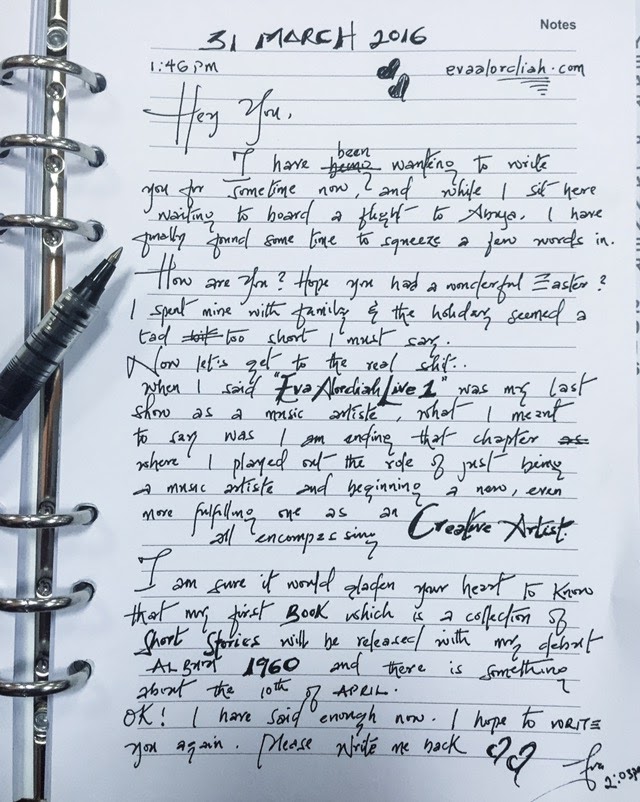 Notes
31 MARCH 2016
1:46pm evaalordiah.com
Hey You,
been
I have being wanting to write
you for sometime now, and while I sit here
waiting to board a flight to Abuja. I have
finally found some time to squeeze a few words in.
How are you? Hope you had a wonderful Easter?
I spent mine with family & the holiday seemed a
tad bit too short I must say.
Now let's get to the real shit..
When I said "Eva Alordiah Live 1" was my last
show as a music artiste, what I meant
to say was I am ending that chapter as
where I played out the role of just being
a music artiste and beginning a new, even
more fulfilling one as an Creative Artist.
all encompassing
I am sure it would gladen your heart to know
that my first Book which is a collection of
Short Stories will be released with my debut
ALBUM 1960 and there is something
about the 10th of APRIL.
OK! I have said enough now. I hope to WRITE
you again. Please Write me back
Eva
2:03pm